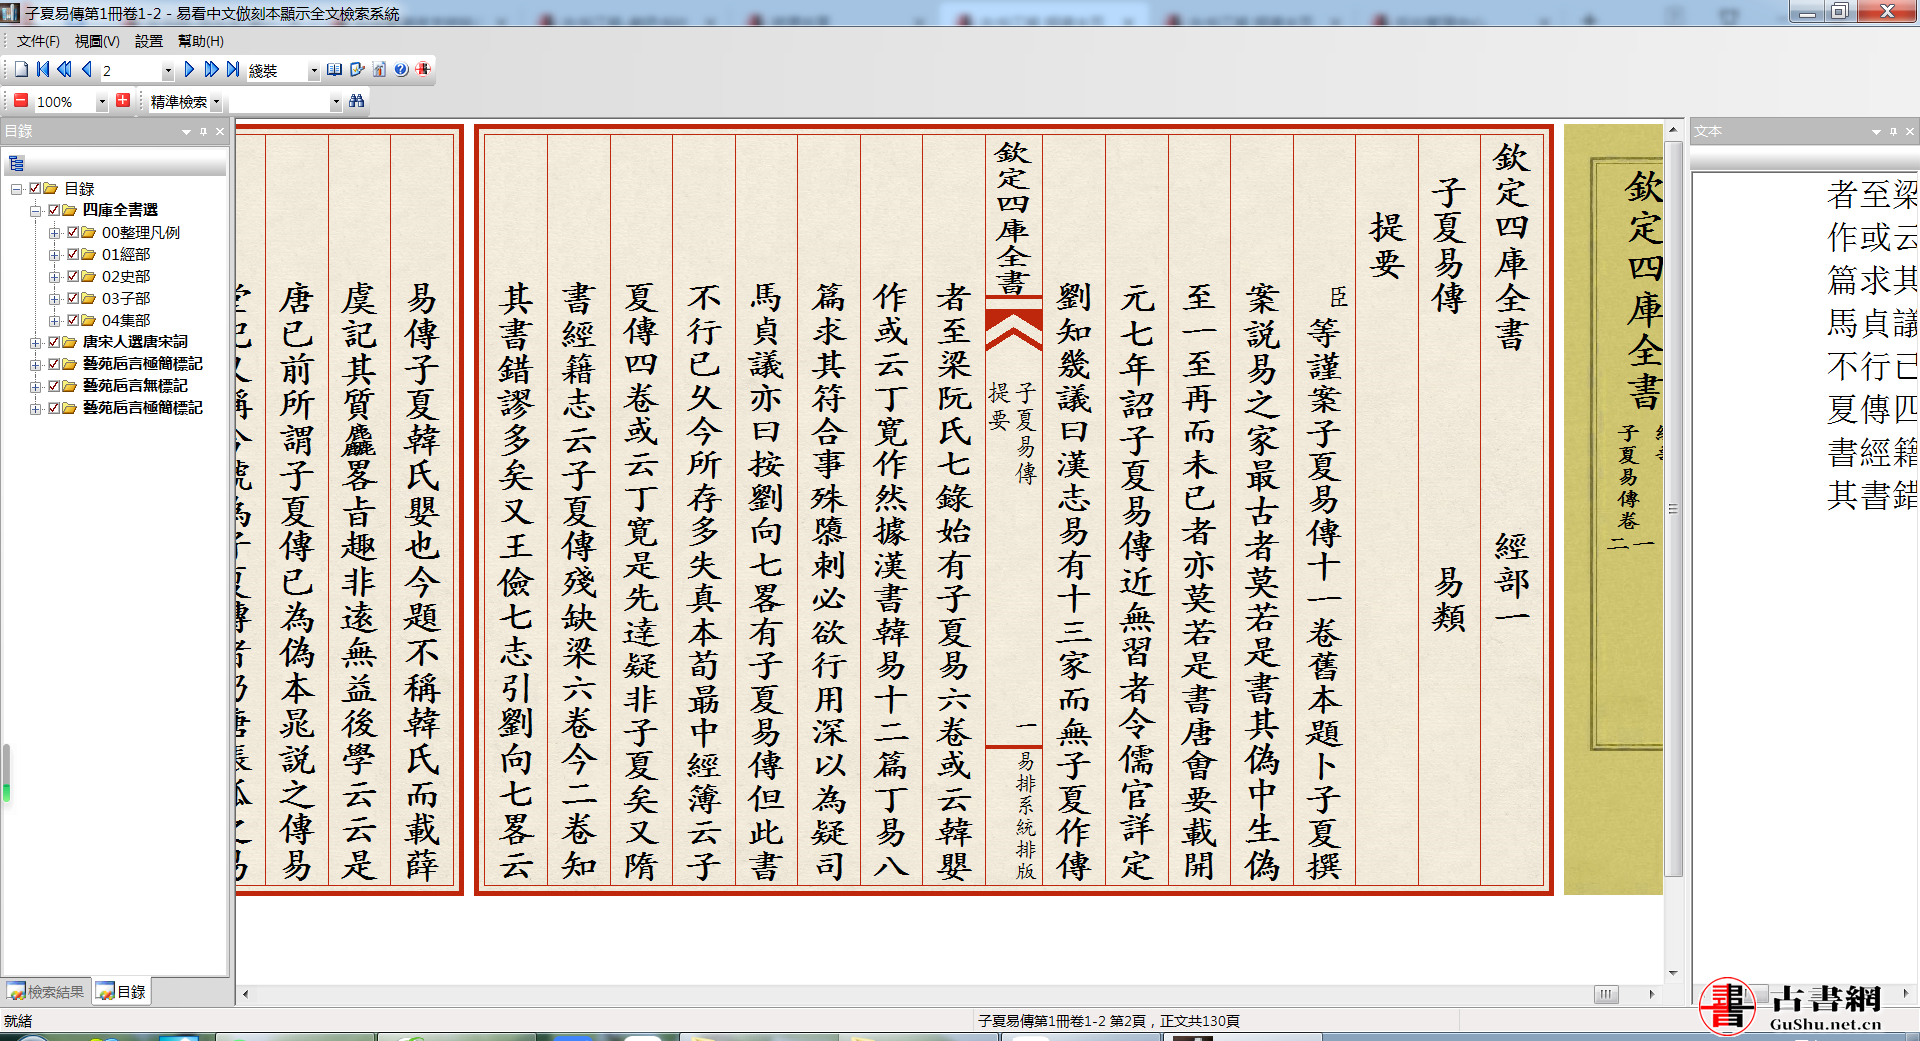 子夏易傳第1冊卷1-2 - 易看中文倣刻本顯示全文檢索系統
文件(F) 視圖(V) 設置 幫助(H)
2 綫裝
100% 精準檢索
目錄
目錄
四庫全書選
00整理凡例
01經部
02史部
03子部
04集部
唐宋人選唐宋詞
藝苑巵言極簡標記
藝苑巵言無標記
藝苑巵言極簡標記
檢索結果 目錄
欽定四庫全書
子夏易傳卷
一
二
欽定四庫全書 經部一
子夏易傳 易類
提要
臣等謹案子夏易傳十一卷舊本題卜子夏撰
案説易之家最古者莫若是書其偽中生偽
至一至再而未已者亦莫若是書唐會要載開
元七年詔子夏易傳近無習者令儒官詳定
劉知幾議曰漢志易有十三家而無子夏作傳
欽定四庫全書
子夏易傳
提要
一
易排系統排版
者至梁阮氏七錄始有子夏易六卷或云韓嬰
作或云丁寛作然據漢書韓易十二篇丁易八
篇求其符合事殊隳刺必欲行用深以為疑司
馬貞議亦曰按劉向七畧有子夏易傳但此書
不行已乆今所存多失真本荀朂中經簿云子
夏傳四卷或云丁寛是先達疑非子夏矣又隋
書經籍志云子夏傳殘缺梁六卷今二卷知
其書錯謬多矣又王儉七志引劉向七畧云
易傳子夏韓氏嬰也今題不稱韓氏而載薛
虞記其質麤畧㫖趣非逺無益後學云云是
唐已前所謂子夏傳已為偽本晁説之傳易
文本
者至梁
作或云
篇求其
馬貞議
不行已
夏傳四
書經籍
其書錯
就緒
子夏易傳第1冊卷1-2 第2頁，正文共130頁
書
古書網
GuShu.net.cn